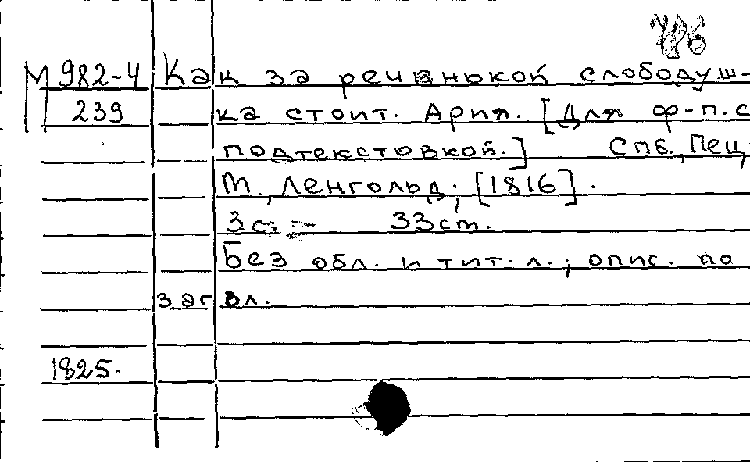 786
М 982-4 Как за реченькой слободуш-
239 ка стоит. Ария. [Для ф-п. с
подтекстовкой.] Спб., Печ,
М., Ленгольд, [1816].
3с. 33ст.
Без обл. и тит. л.; опис. по
загл.
1825.